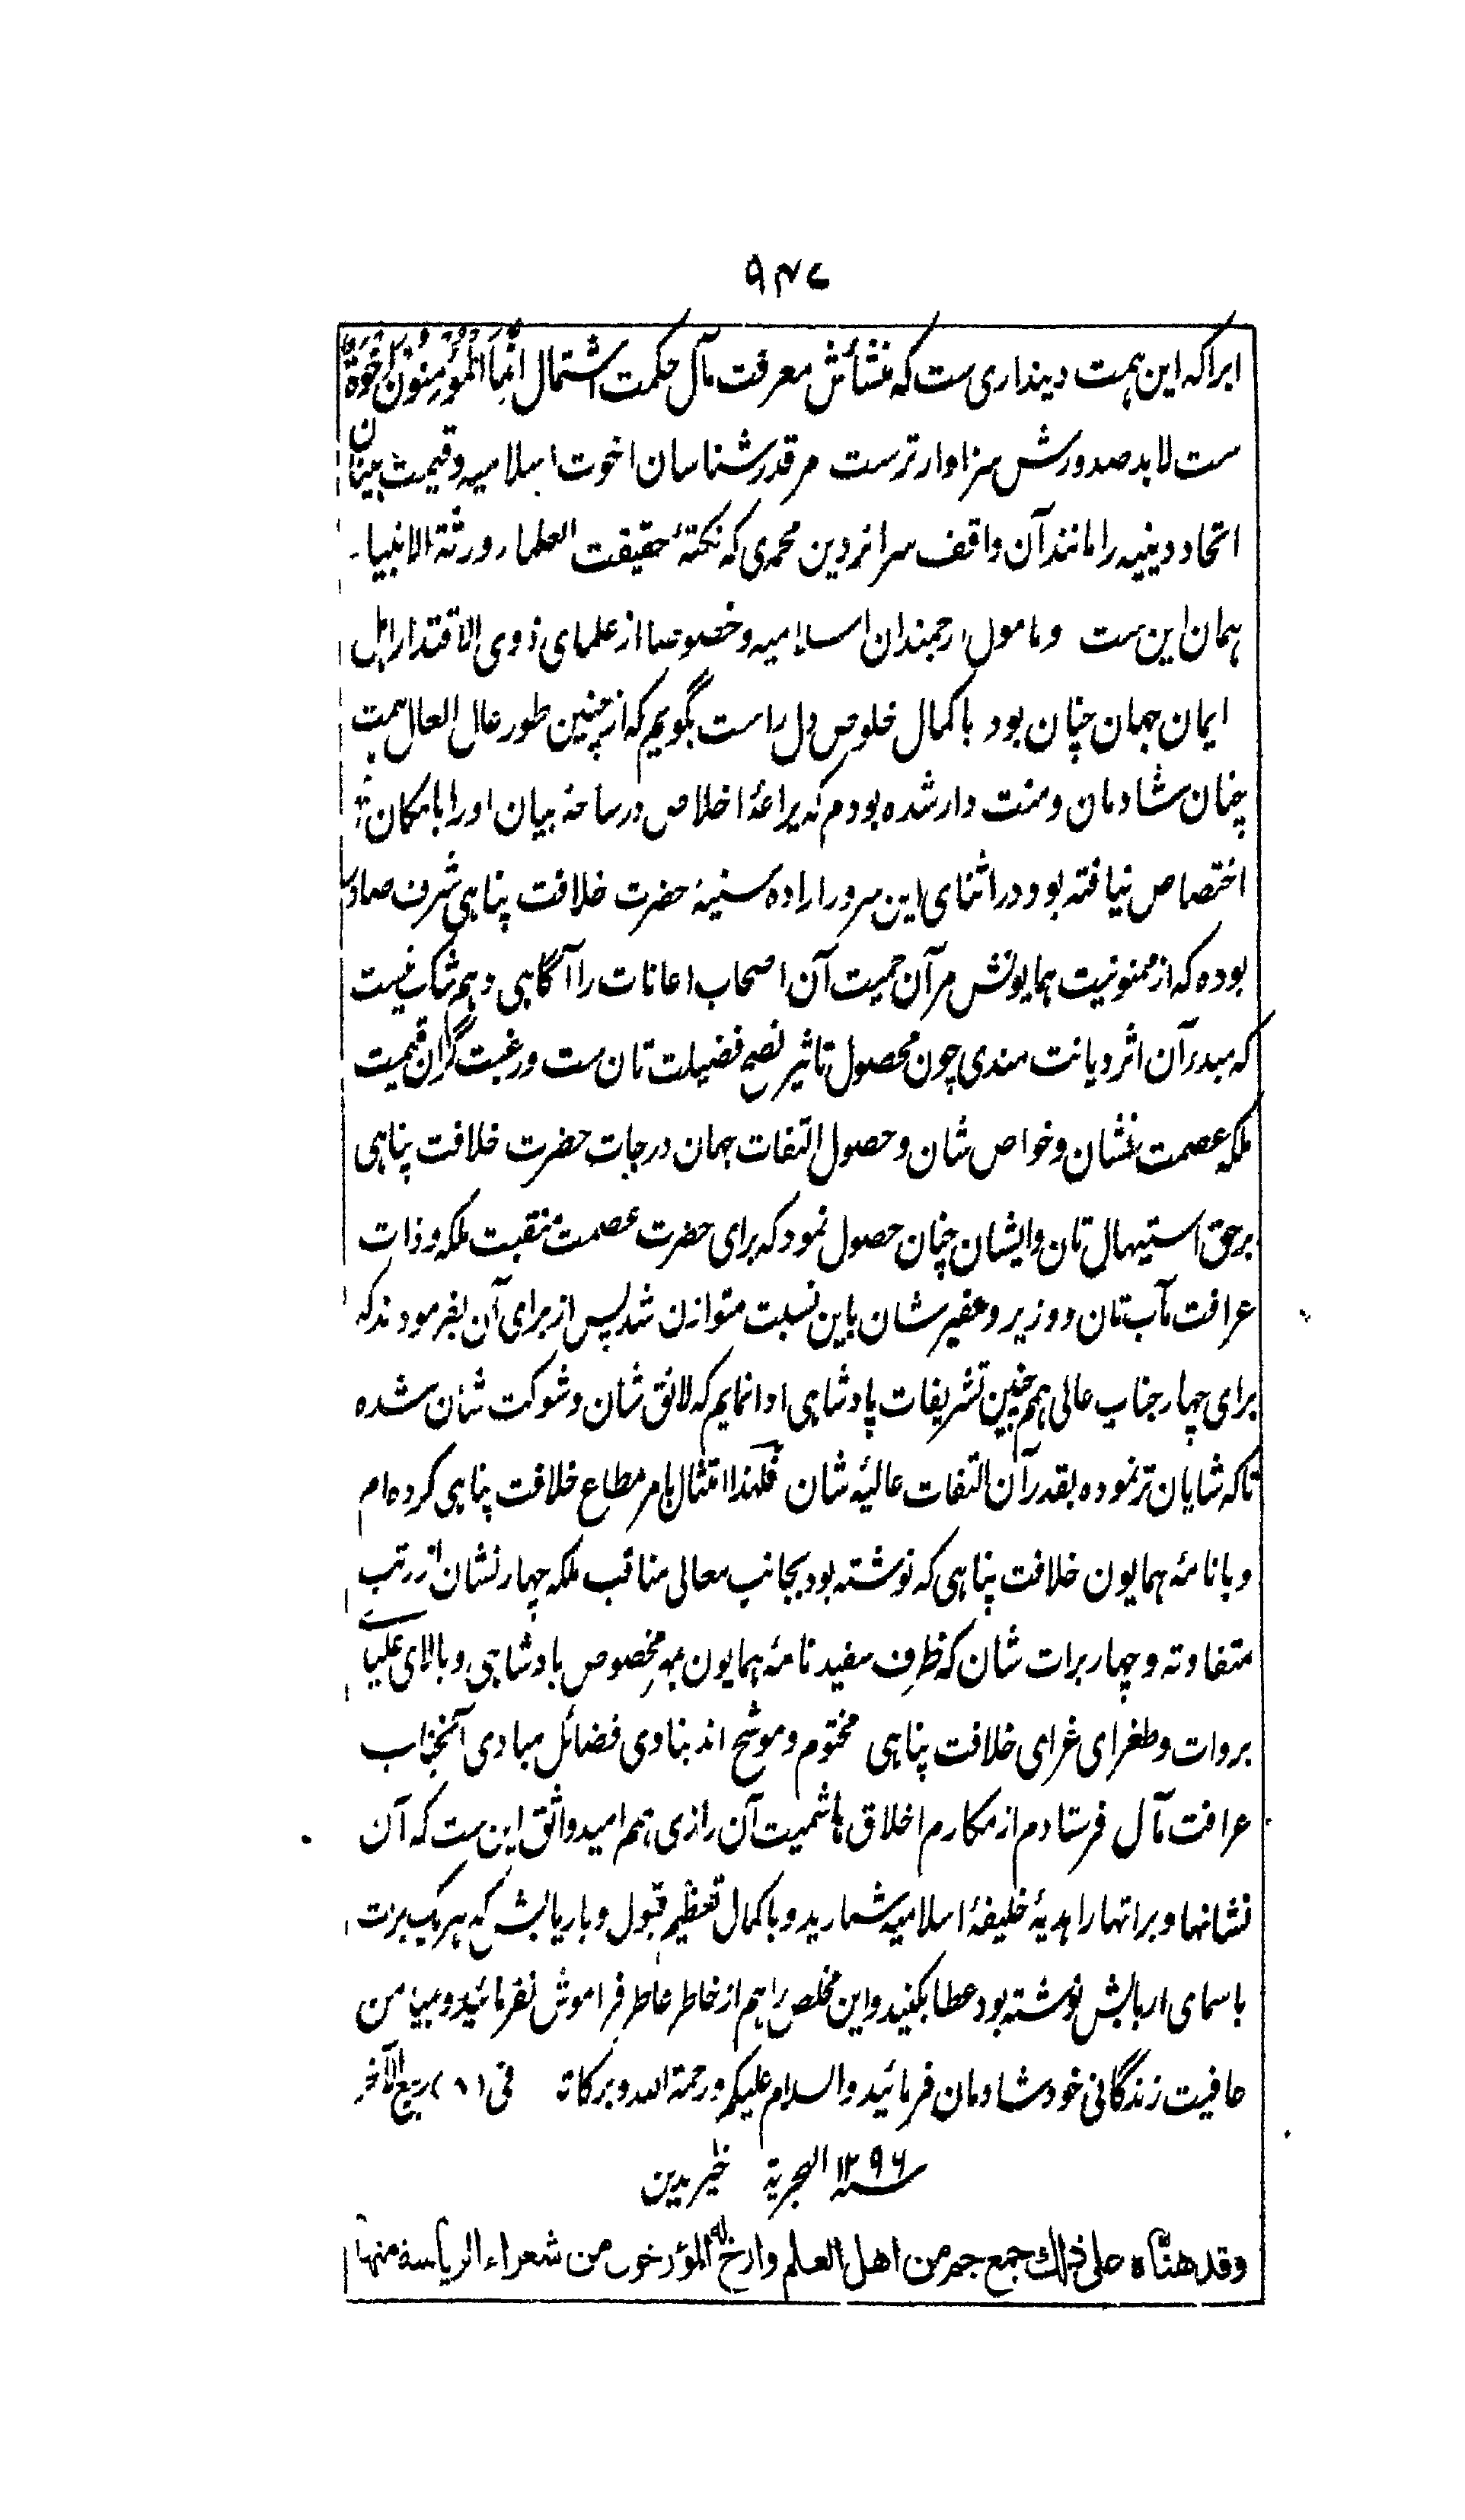 ۹۴۷
ابرا که این همت دینداری ست که منشأش معرفت مآل حکمت اشتمال اِنَّمَا الْمُؤْمِنُوْنَ اِخْوَةٌ
ست لابد صدورش سزاوار ترست مر قدر شناسان اخوت اسلامیه و قیمت بینان
اتحاد دینیه را مانند آن واقف سرائر دین محمدی که نکتهٔ حقیقت العلماء ورثة الانبیاء
همان این ست و مامول ارجمندان اسلامیه و خصوصا از علمای ذوی الاقتدار اهل
ایمان جهان چنان بود با کمال خلوص دل راست بگویم که از چنین طور عال العال همت
چنان شادمان و منت دار شده بودم که یراعهٔ اخلاص در ساحهٔ بیان او را با مکان
اختصاص نیافته بود در اثنای این سرور اراده سنیهٔ حضرت خلافت پناهی شرف صادر
بوده که از ممنونیت همایونش مر آن حمیت آن اصحاب اعانات را آگاهی دهم شک نیست
که مبدر آن اثر دیانت مندی چون محصول تاثیر نصح فضیلت تان ست و رغبت گران قیمت
ملکه عصمت نشان و خواص شان و حصول التفات جهان درجات حضرت خلافت پناهی
بر حق استیهال تان و ایشان چنان حصول نمود که برای حضرت عصمت منقبت ملکه و ذات
عرافت مآب تان و وزیر و سفیر شان باین نسبت متوازن شد پس از برای آن بفرمودند که
برای چهار جناب عالی هم چنین تشریفات پادشاهی ادا نمایم که لائق شان و شوکت شان شده
تا که شایان تر نموده بقدر آن التفات عالیهٔ شان فلهذا امتثال بامر مطاع خلافت پناهی کرده ام
و با نامهٔ همایون خلافت پناهی که نوشته بود بجانب معالی مناقب ملکه چهار نشان از رتب
متفاوته و چهار برات شان که ظرف سفید نامهٔ همایون بمهر مخصوص پادشاهی و بالای علیای
بروات و طغرای غرای خلافت پناهی مختوم و موشح اند بنادی فضائل مبادی آنجناب
عرافت مآل فرستادم از مکارم اخلاق هاشمیت آن رازی هم امید واثق این ست که آن
نشانها و براتها را هدیهٔ خلیفهٔ اسلامیه شمارید و با کمال تعظیم قبول و باربابش که هر یک برت
باسمای اربابش نوشته بود عطا بکنید و این مخلص را هم از خاطر عاطر فراموش نفرمائید و مییامن
عافیت زندگانی خود شادمان فرمائید والسلام علیکم و رحمة الله و برکاته فی (۸) ربیع الآخر
سنه ۱۲۹۶ الهجریة خیر الدین
وقد هنّاه على ذلك جمع جم من اهل العلم وارخ له المؤرخون من شعراء الرياسة منها